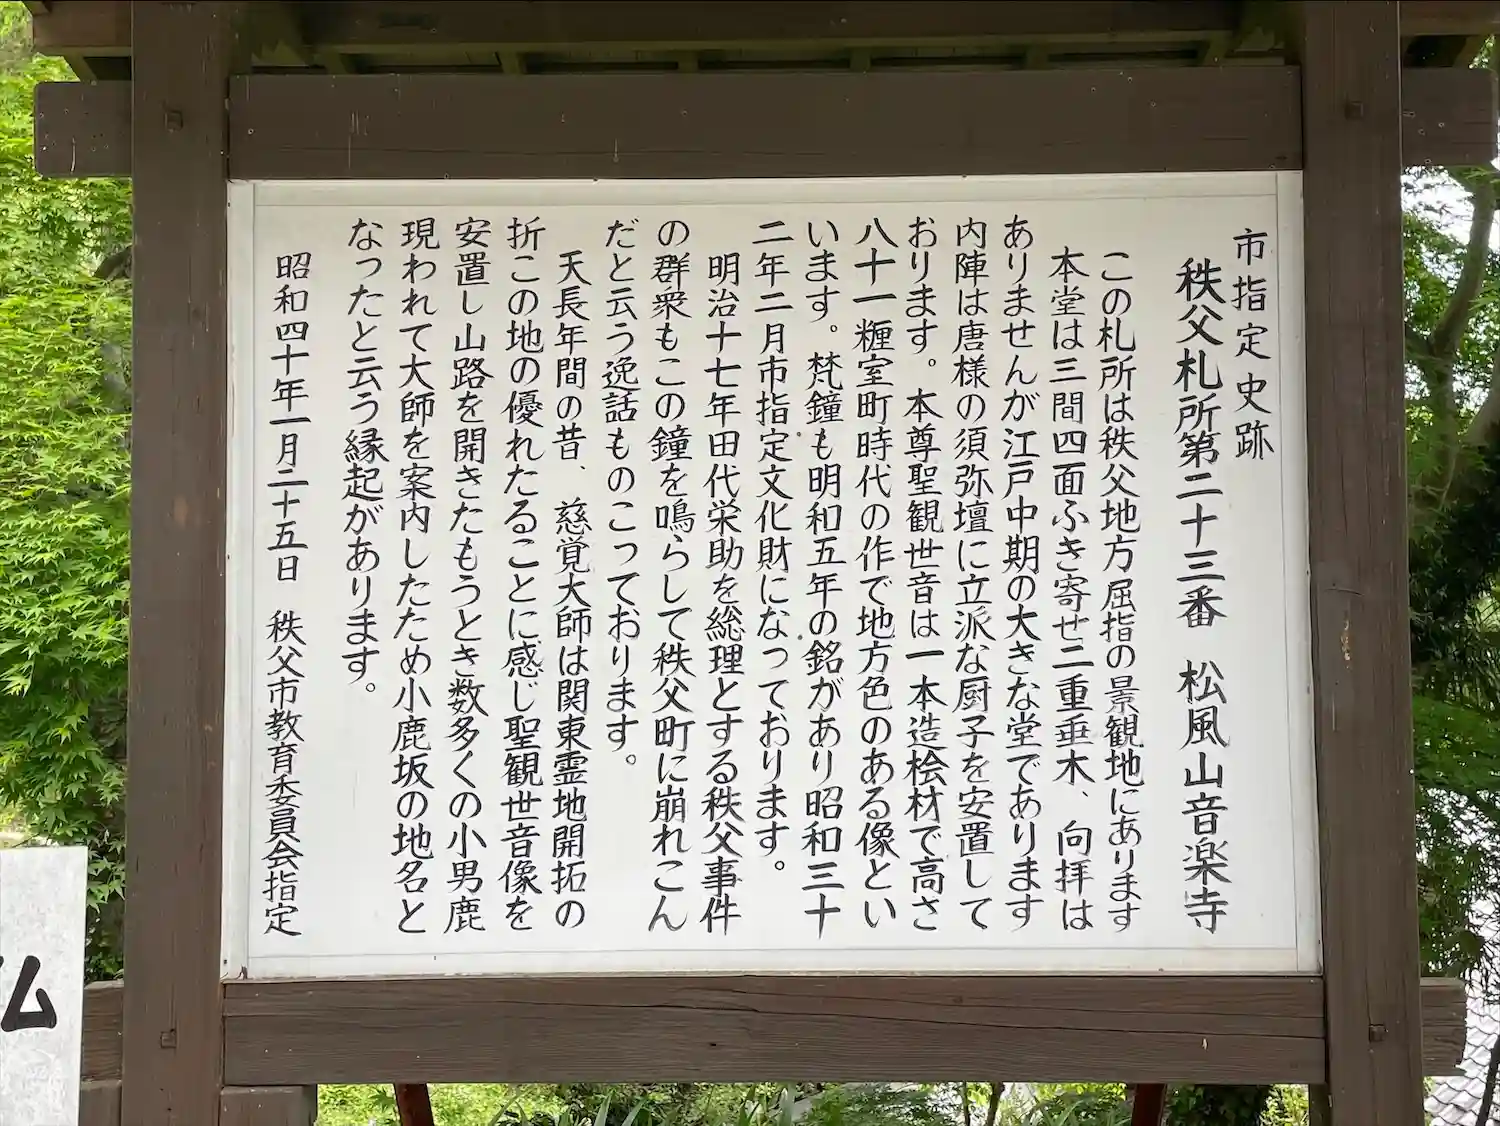 市指定史跡
秩父札所第二十三番　松風山音楽寺
この札所は秩父地方屈指の景観地にあります
本堂は三間四面ふき寄せ二重垂木、向拝は
ありませんが江戸中期の大きな堂であります
内陣は唐様の須弥壇に立派な厨子を安置して
おります。本尊聖観世音は一本造桧材で高さ
八十一糎室町時代の作で地方色のある像とい
います。梵鐘も明和五年の銘があり昭和三十
二年二月市指定文化財になっております。
明治十七年田代栄助を総理とする秩父事件
の群衆もこの鐘を鳴らして秩父町に崩れこん
だと云う逸話ものこっております。
天長年間の昔、慈覚大師は関東霊地開拓の
折この地の優れたることに感じ聖観世音像を
安置し山路を開きたもうとき数多くの小男鹿
現われて大師を案内したため小鹿坂の地名と
なったと云う縁起があります。
昭和四十年一月二十五日　秩父市教育委員会指定
仏